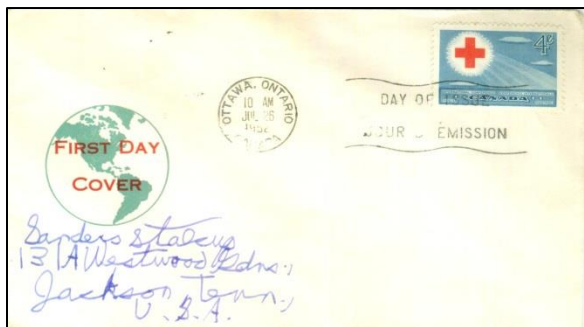 OTTAWA, ONTARIO
10 AM
JUL 26
1952
DAY OF ISSUE
JOUR D' EMISSION
4¢
CANADA
FIRST DAY
COVER
Sanders Stalcup
131A Westwood Gdns.,
Jackson Tenn.,
U.S.A.